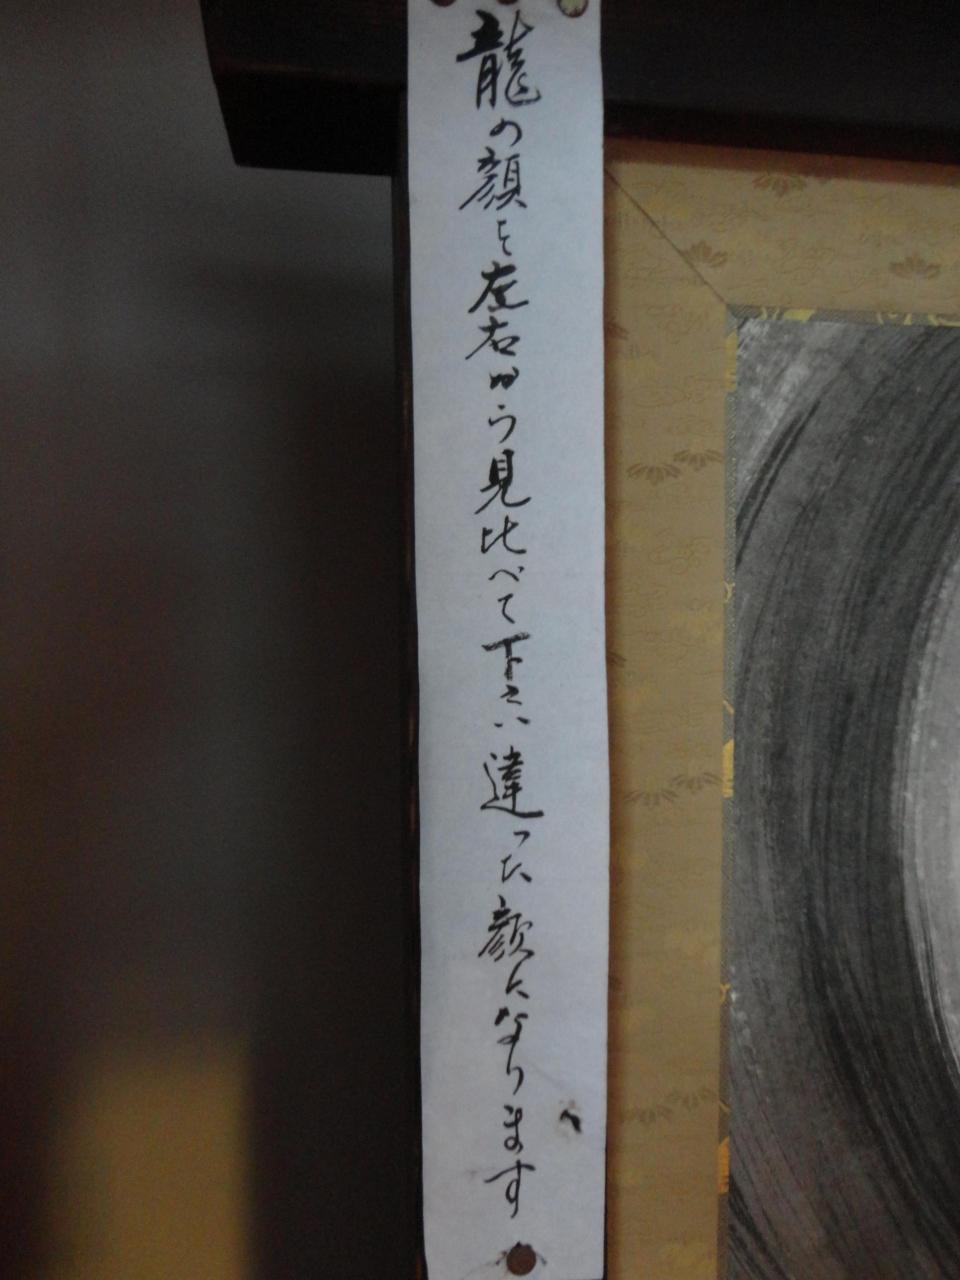 龍の顔を左右から見比べて下さい違った顔になります